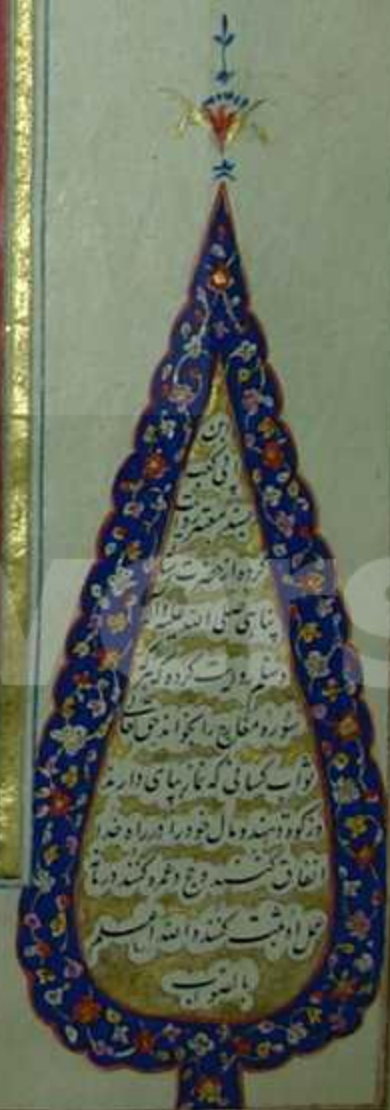 ابن
ابی کعب
بسند معتبر روایت
کرده از حضرت رسالت
پناهی صلی الله علیه و آله
و سلم روایت کرده که هر که
سوره معارج را بخواند حق تعالی
ثواب کسانی که نماز بپای دارند
و زکوة دهند و مال خود را در راه خدا
انفاق کنند و حج و عمره کنند در نامه
عمل او ثبت کنند و الله اعلم
بالصواب